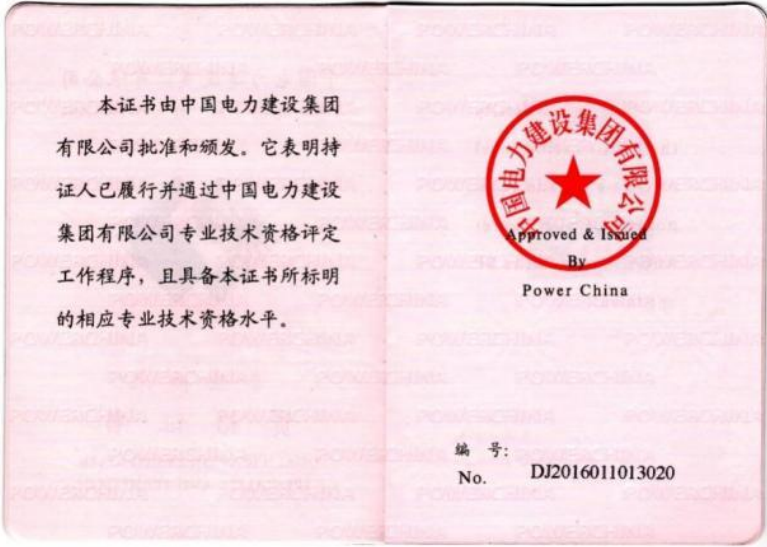 本证书由中国电力建设集团
有限公司批准和颁发。它表明持
证人已履行并通过中国电力建设
集团有限公司专业技术资格评定
工作程序，且具备本证书所标明
的相应专业技术资格水平。
中国电力建设集团有限公司
Approved & Issued
By
Power China
编 号:
No. DJ2016011013020
POWERCHINA